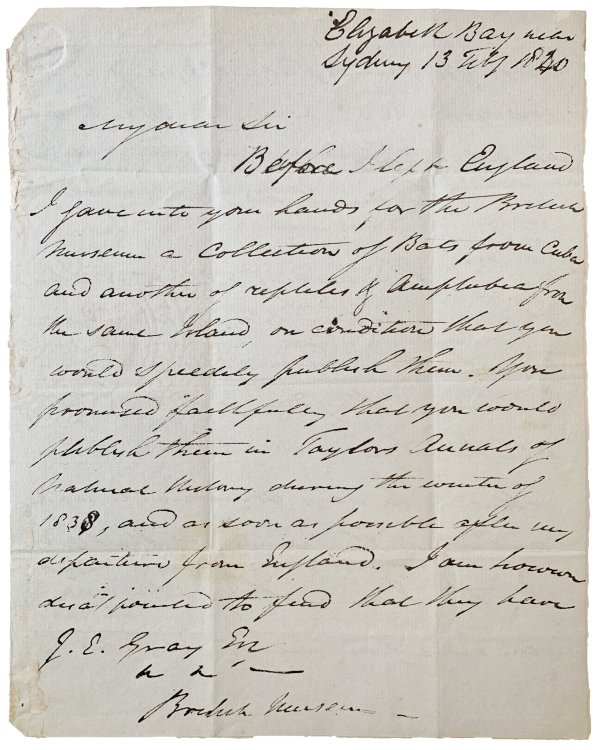 Elizabeth Bay near
Sydney 13 Feby 1840
My dear Sir
Before I left England
I gave into your hands for the British
Museum a Collection of Bats from Cuba
and another of reptiles & Amphibia from
the same Island, on condition that you
would speedily publish them. You
promised faithfully that you would
publish them in Taylors Annals of
Natural History during the winter of
1838, and as soon as possible after my
departure from England. I am however
disappointed to find that they have
J. E. Gray Esq
British Museum